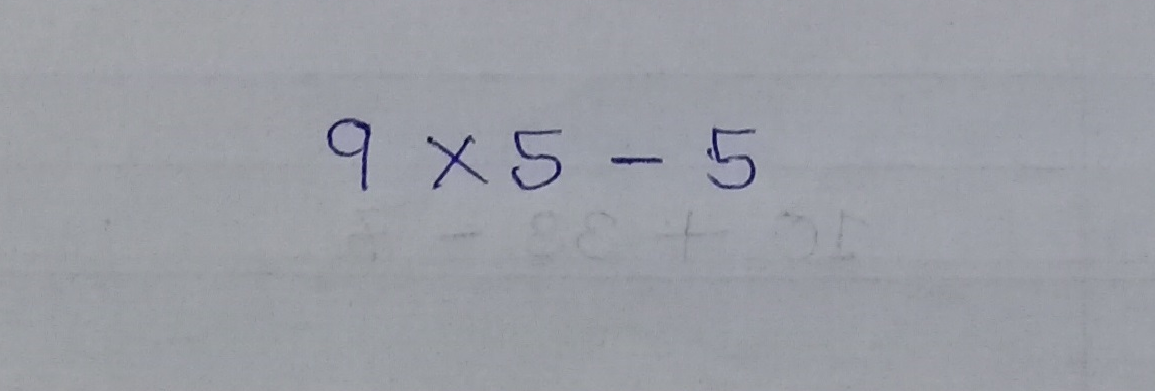 9 × 5 − 5